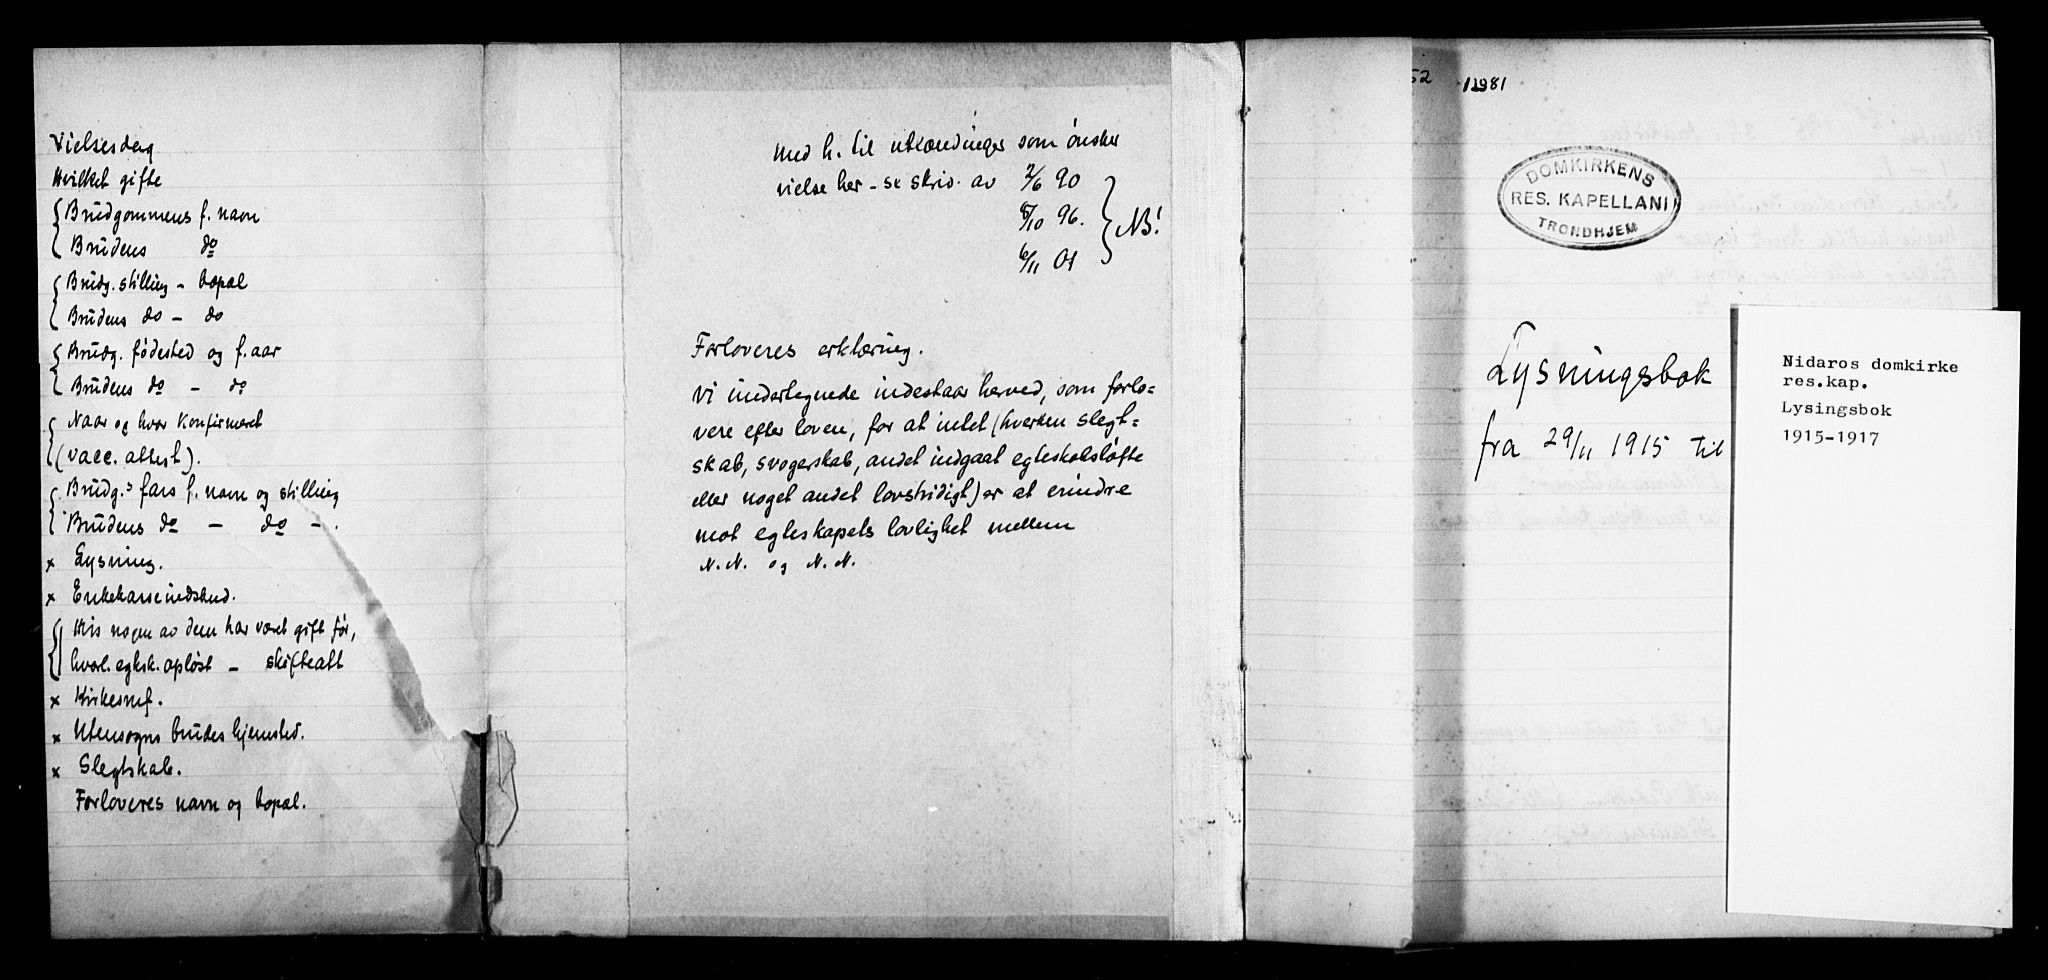 Vielsesdag
Hvilket gifte
Brudgommens f. navn
Brudens do
Brudg. stilling - bopæl
Brudens do - do
Brudg. fødested og f. aar
Brudens do - do
Naar og hvor konfirmeret
(vacc. attest).
Brudg.s fars f. navn og stilling
Brudens do - do -.
x Lysning.
x Enkekasseindskud.
Hvis nogen av dem har været gift før,
hvorl. egtsk. opløst - skifteatt
x Kirkesnef.
x Utensogns brudes hjemsted.
x Slegtskab.
Forloveres navn og bopæl.
Med h. til utlændinger som ønsker
vielse her - se skriv. av 2/6 90
8/10 96.
6/11 01
NB!
Forloveres erklæring.
Vi undertegnede indestaar herved, som forlo=
vere efter loven, for at intet (hverken slegt=
skab, svogerskab, andet indgaat egteskabsløfte
eller noget andet lovstridigt) er at erindre
mot egteskapets lovlighet mellem
N.N. og N.N.
52 11981
DOMKIRKENS
RES. KAPELLANI
TRONDHJEM
Lysningsbok
fra 29/11 1915 til
Nidaros domkirke
res.kap.
Lysingsbok
1915-1917